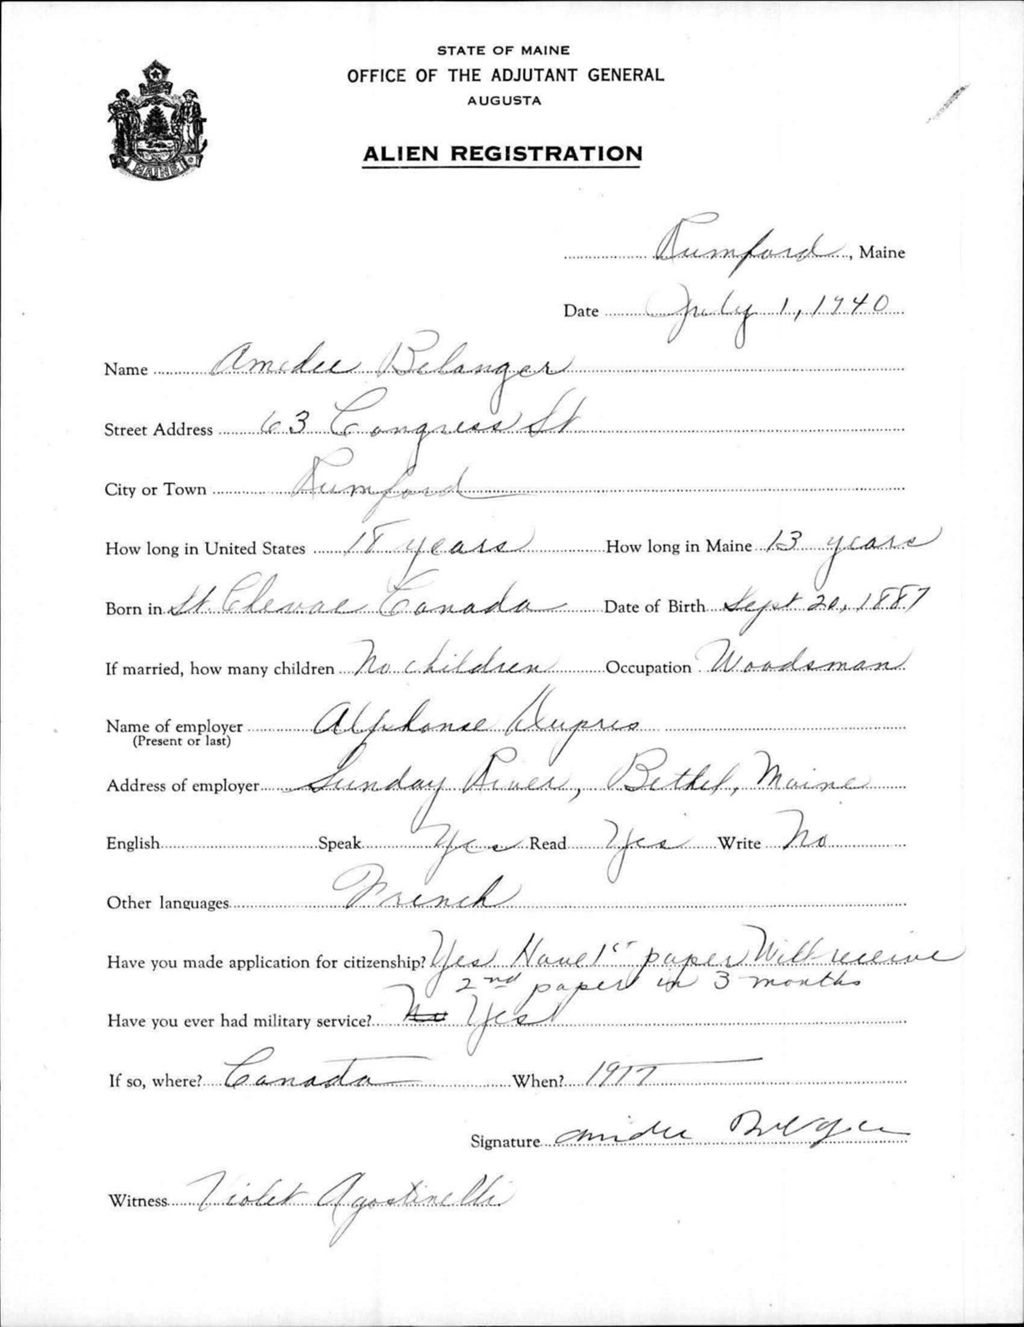 STATE OF MAINE
OFFICE OF THE ADJUTANT GENERAL
AUGUSTA
MAINE
ALIEN REGISTRATION
Rumford, Maine
Date July 1, 1940
Name Amedee Belanger
Street Address 63 Congress St
City or Town Rumford
How long in United States 18 years How long in Maine 13 years
Born in St. Canada Date of Birth Sept 20, 1887
If married, how many children No children Occupation Woodsman
Name of employer Alphonse Dupris
(Present or last)
Address of employer Sunday River, Bethel, Maine
English Speak Yes Read Yes Write No
Other languages French
Have you made application for citizenship? Yes Have 1st paper Will receive
2nd paper in 3 months
Have you ever had military service? No Yes
If so, where? Canada When? 1917
Signature
Witness Violet Agostinelli